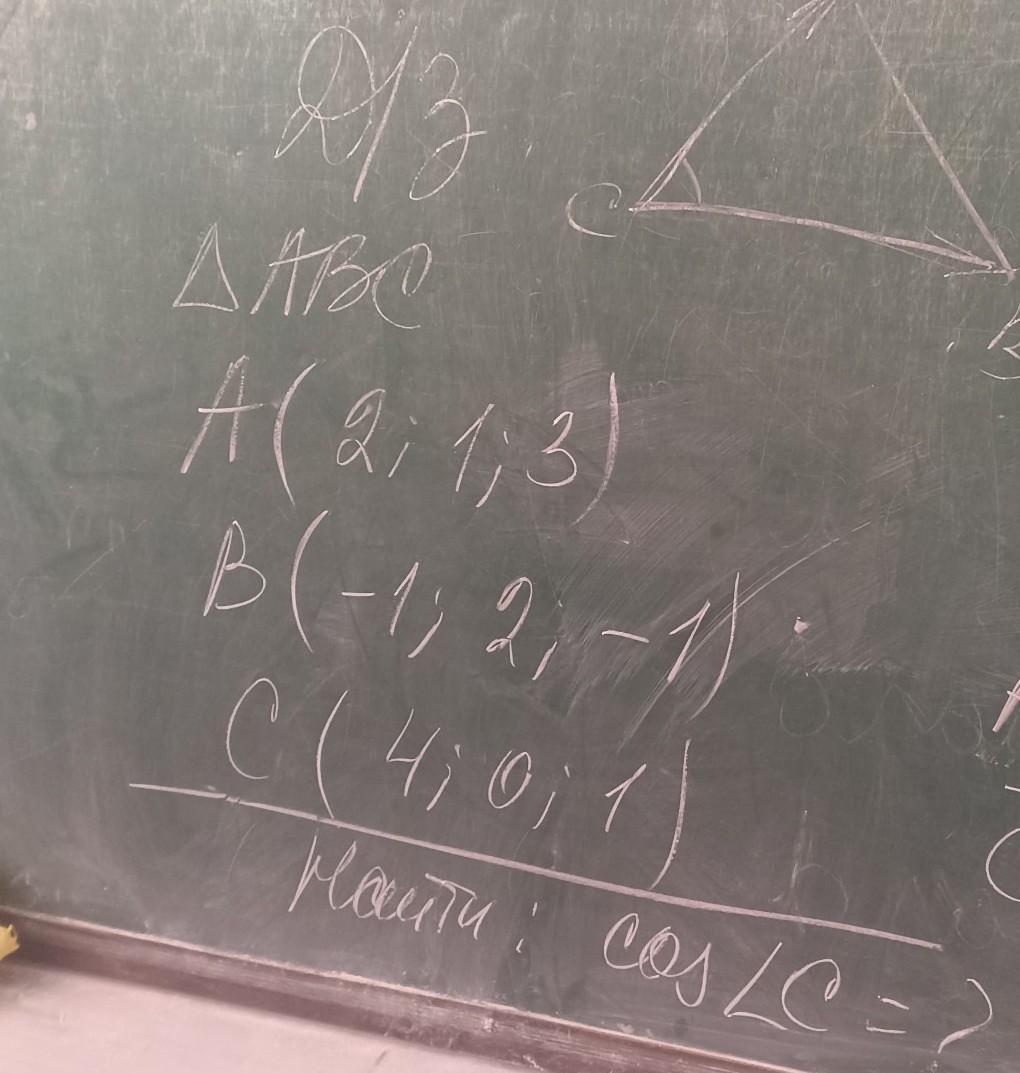 Д/з
C
△ABC
A(2; 1; 3)
B(-1; 2; -1)
C(4; 0; 1)
Найти: cos∠C = ?